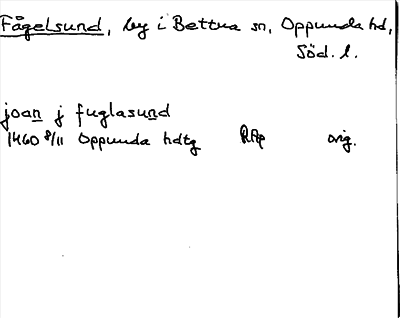 Fågelsund, by i Bettna sn, Oppunda hd,
Söd. l.
joan j fuglasund
1460 8/11 Oppunda hdtg RAp orig.